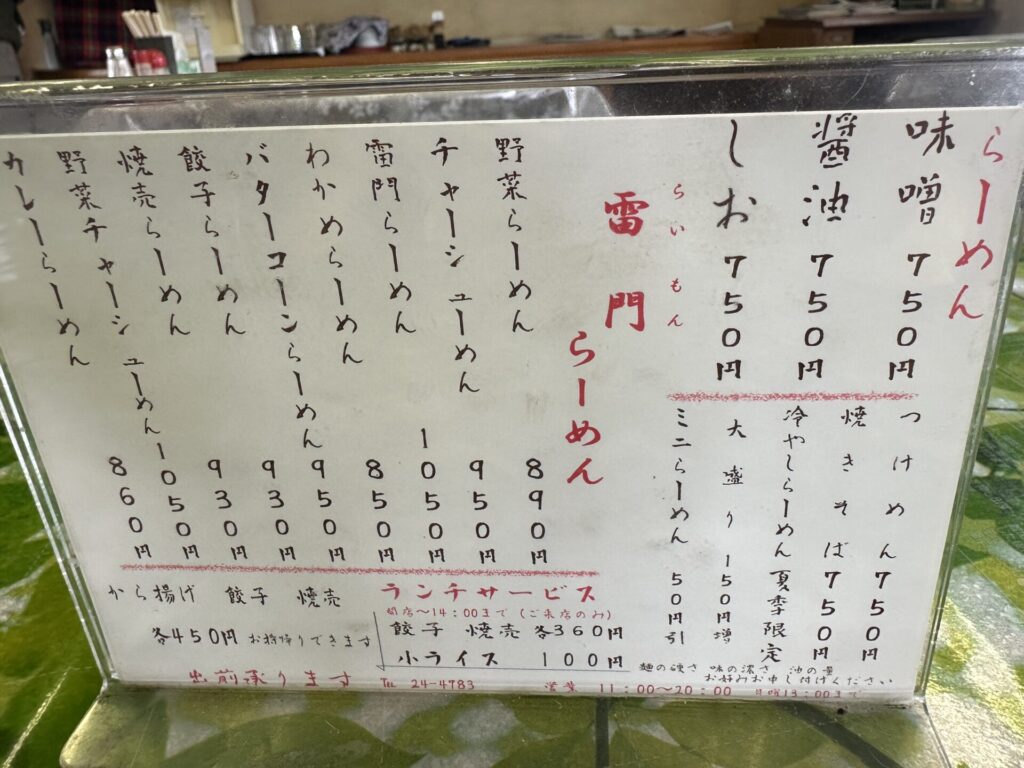 らーめん
味噌 750円
醤油 750円
しお 750円
つけめん 750円
焼きそば 750円
冷やしらーめん 夏季限定
大盛り 150円増
ミニらーめん 50円引
麺の硬さ 味の濃さ 油の量
お好みお申し付けください
らいもん
雷門らーめん
野菜らーめん 890円
チャーシューめん 950円
雷門らーめん 1050円
わかめらーめん 850円
バターコーンらーめん 950円
餃子らーめん 930円
焼売らーめん 930円
野菜チャーシューめん 1050円
カレーらーめん 860円
ランチサービス
開店〜14:00まで(ご来店のみ)
餃子 焼売 各360円
小ライス 100円
から揚げ 餃子 焼売
各450円 お持帰りできます
出前承ります TEL 24-4783 営業 11:00〜20:00 日曜15:00まで